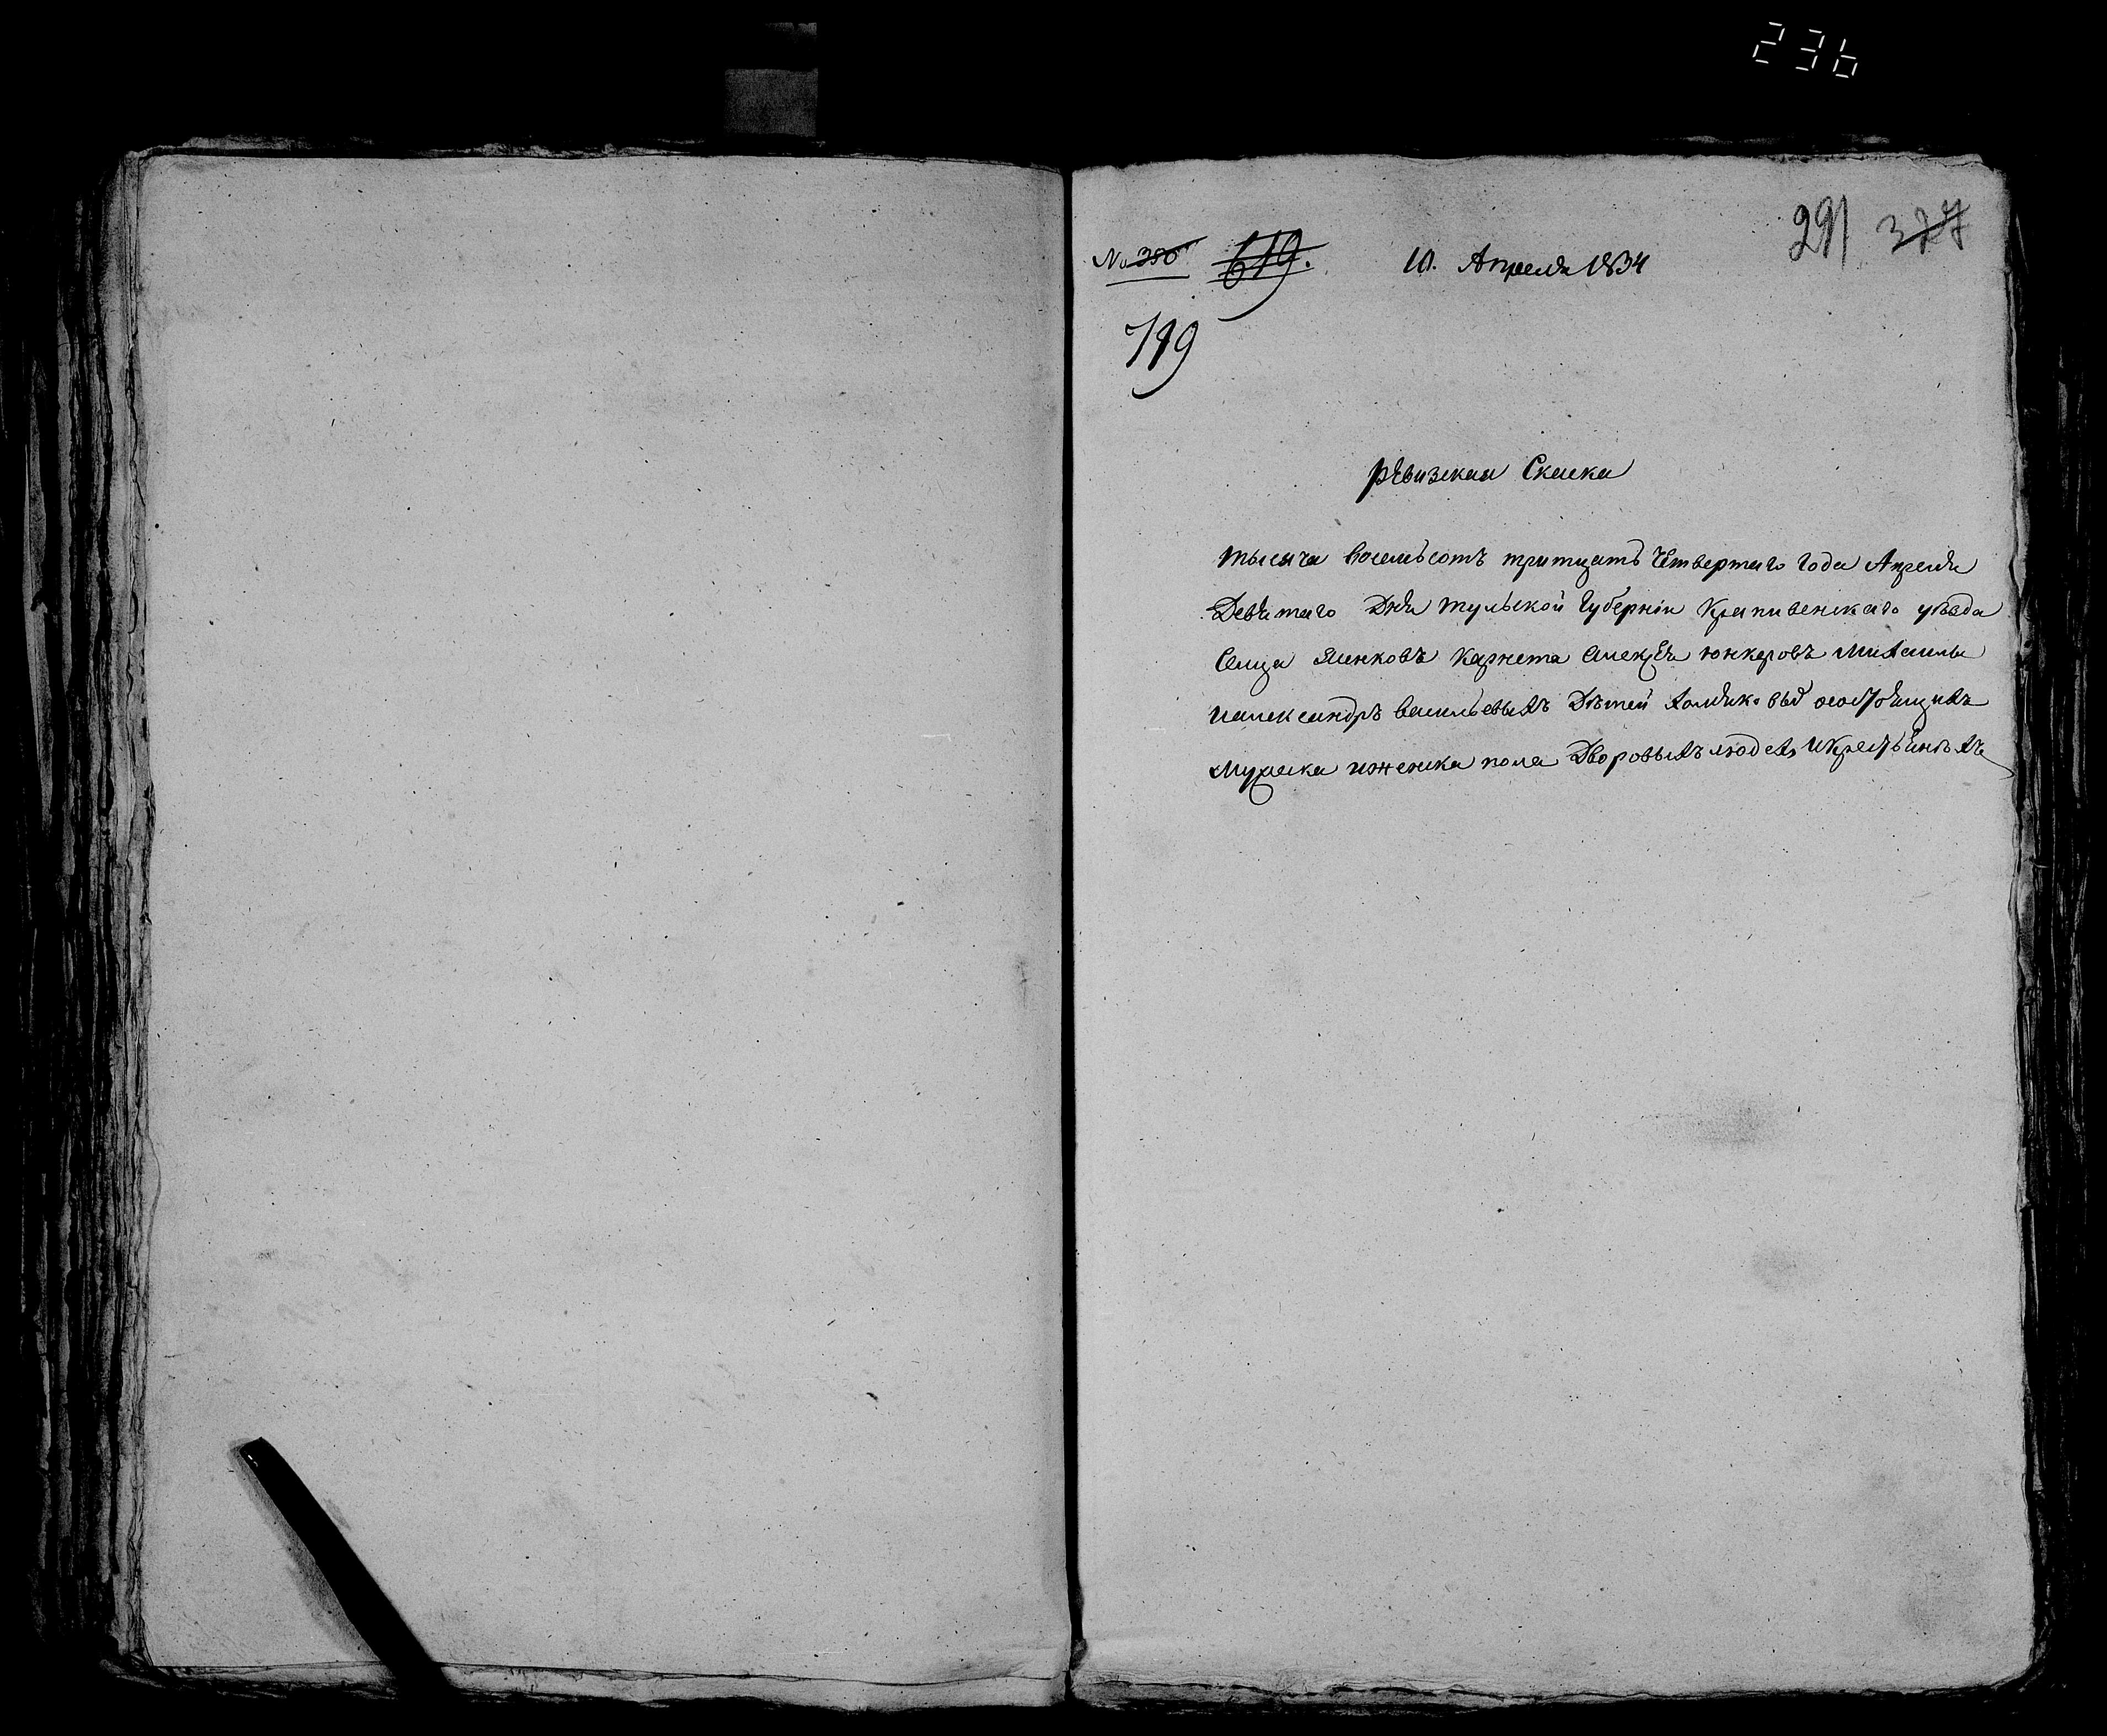 236
291 327
№ 380 619. 10. Апреля 1834
719
Ревизская Скаска
тысяча восемьсотъ тритцать четвертаго года Апреля
Девятаго Дня тульской губерніи Крапивенскаго уѣзда
Сельца Яснковъ Карнета Алексея юнкеровъ Михаилы
иалександръ васильевыхъ Дѣтей
мужеска иженска пола Дворовыхъ людех икрестьянѣхъ